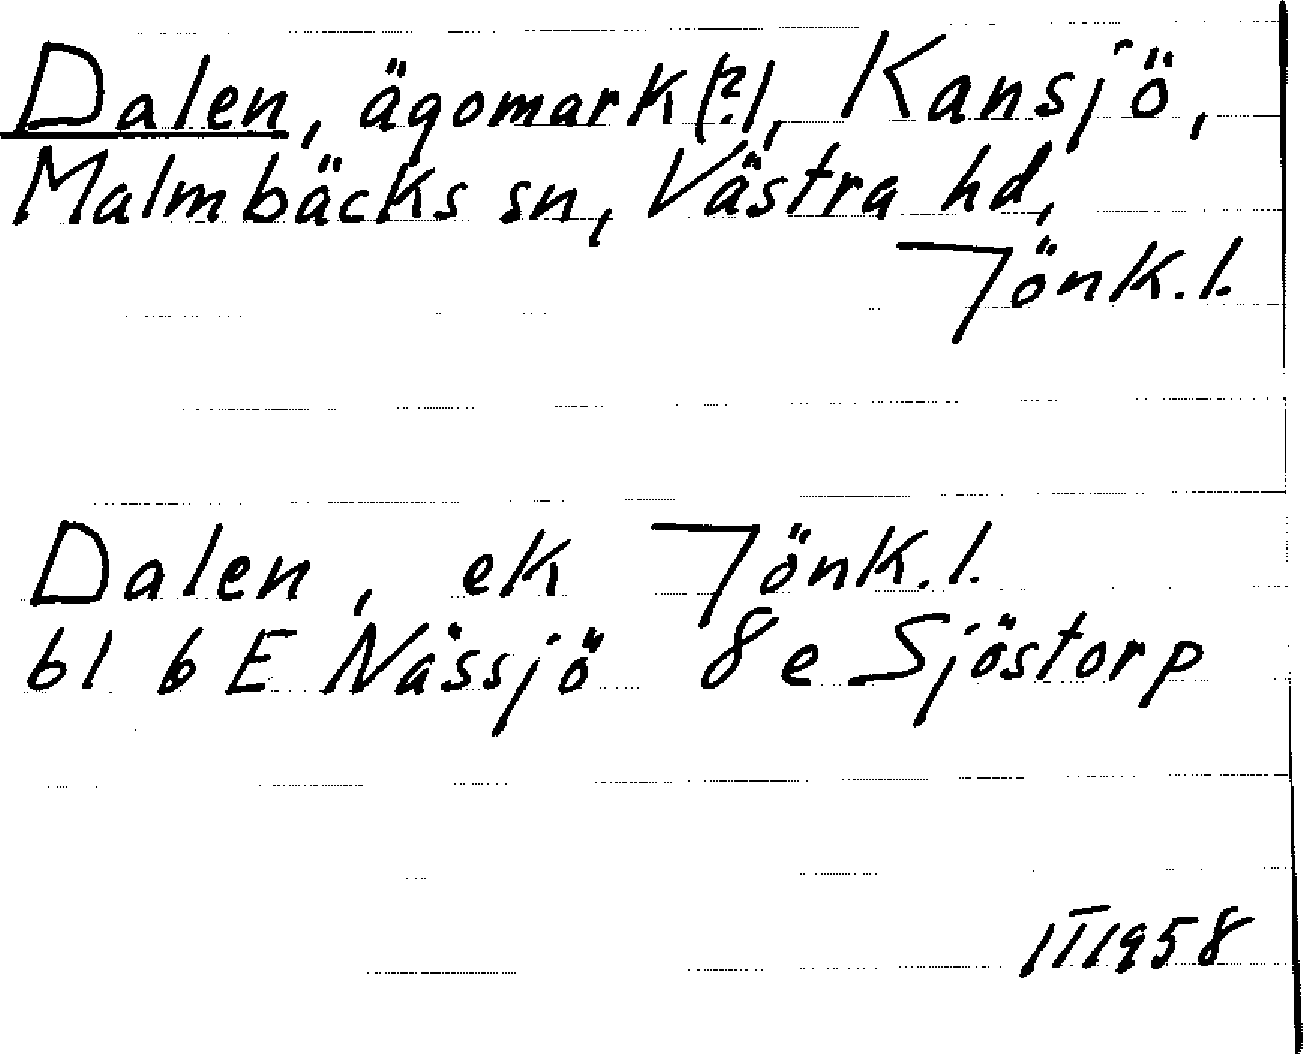 Dalen, ägomark (?), Kansjö,
Malmbäcks sn, Västra hd,
Jönk.l.
Dalen, ek Jönk.l.
bl 6 E Nässjö 8e Sjöstorp
1958